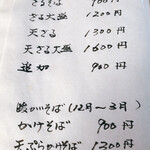 ざるそば 900円
ざる大盛 1200円
天ざる 1300円
天ざる大盛 1600円
追加 900円
暖かいそば(12月〜3月)
かけそば 900円
天ぷらかけそば 1300円